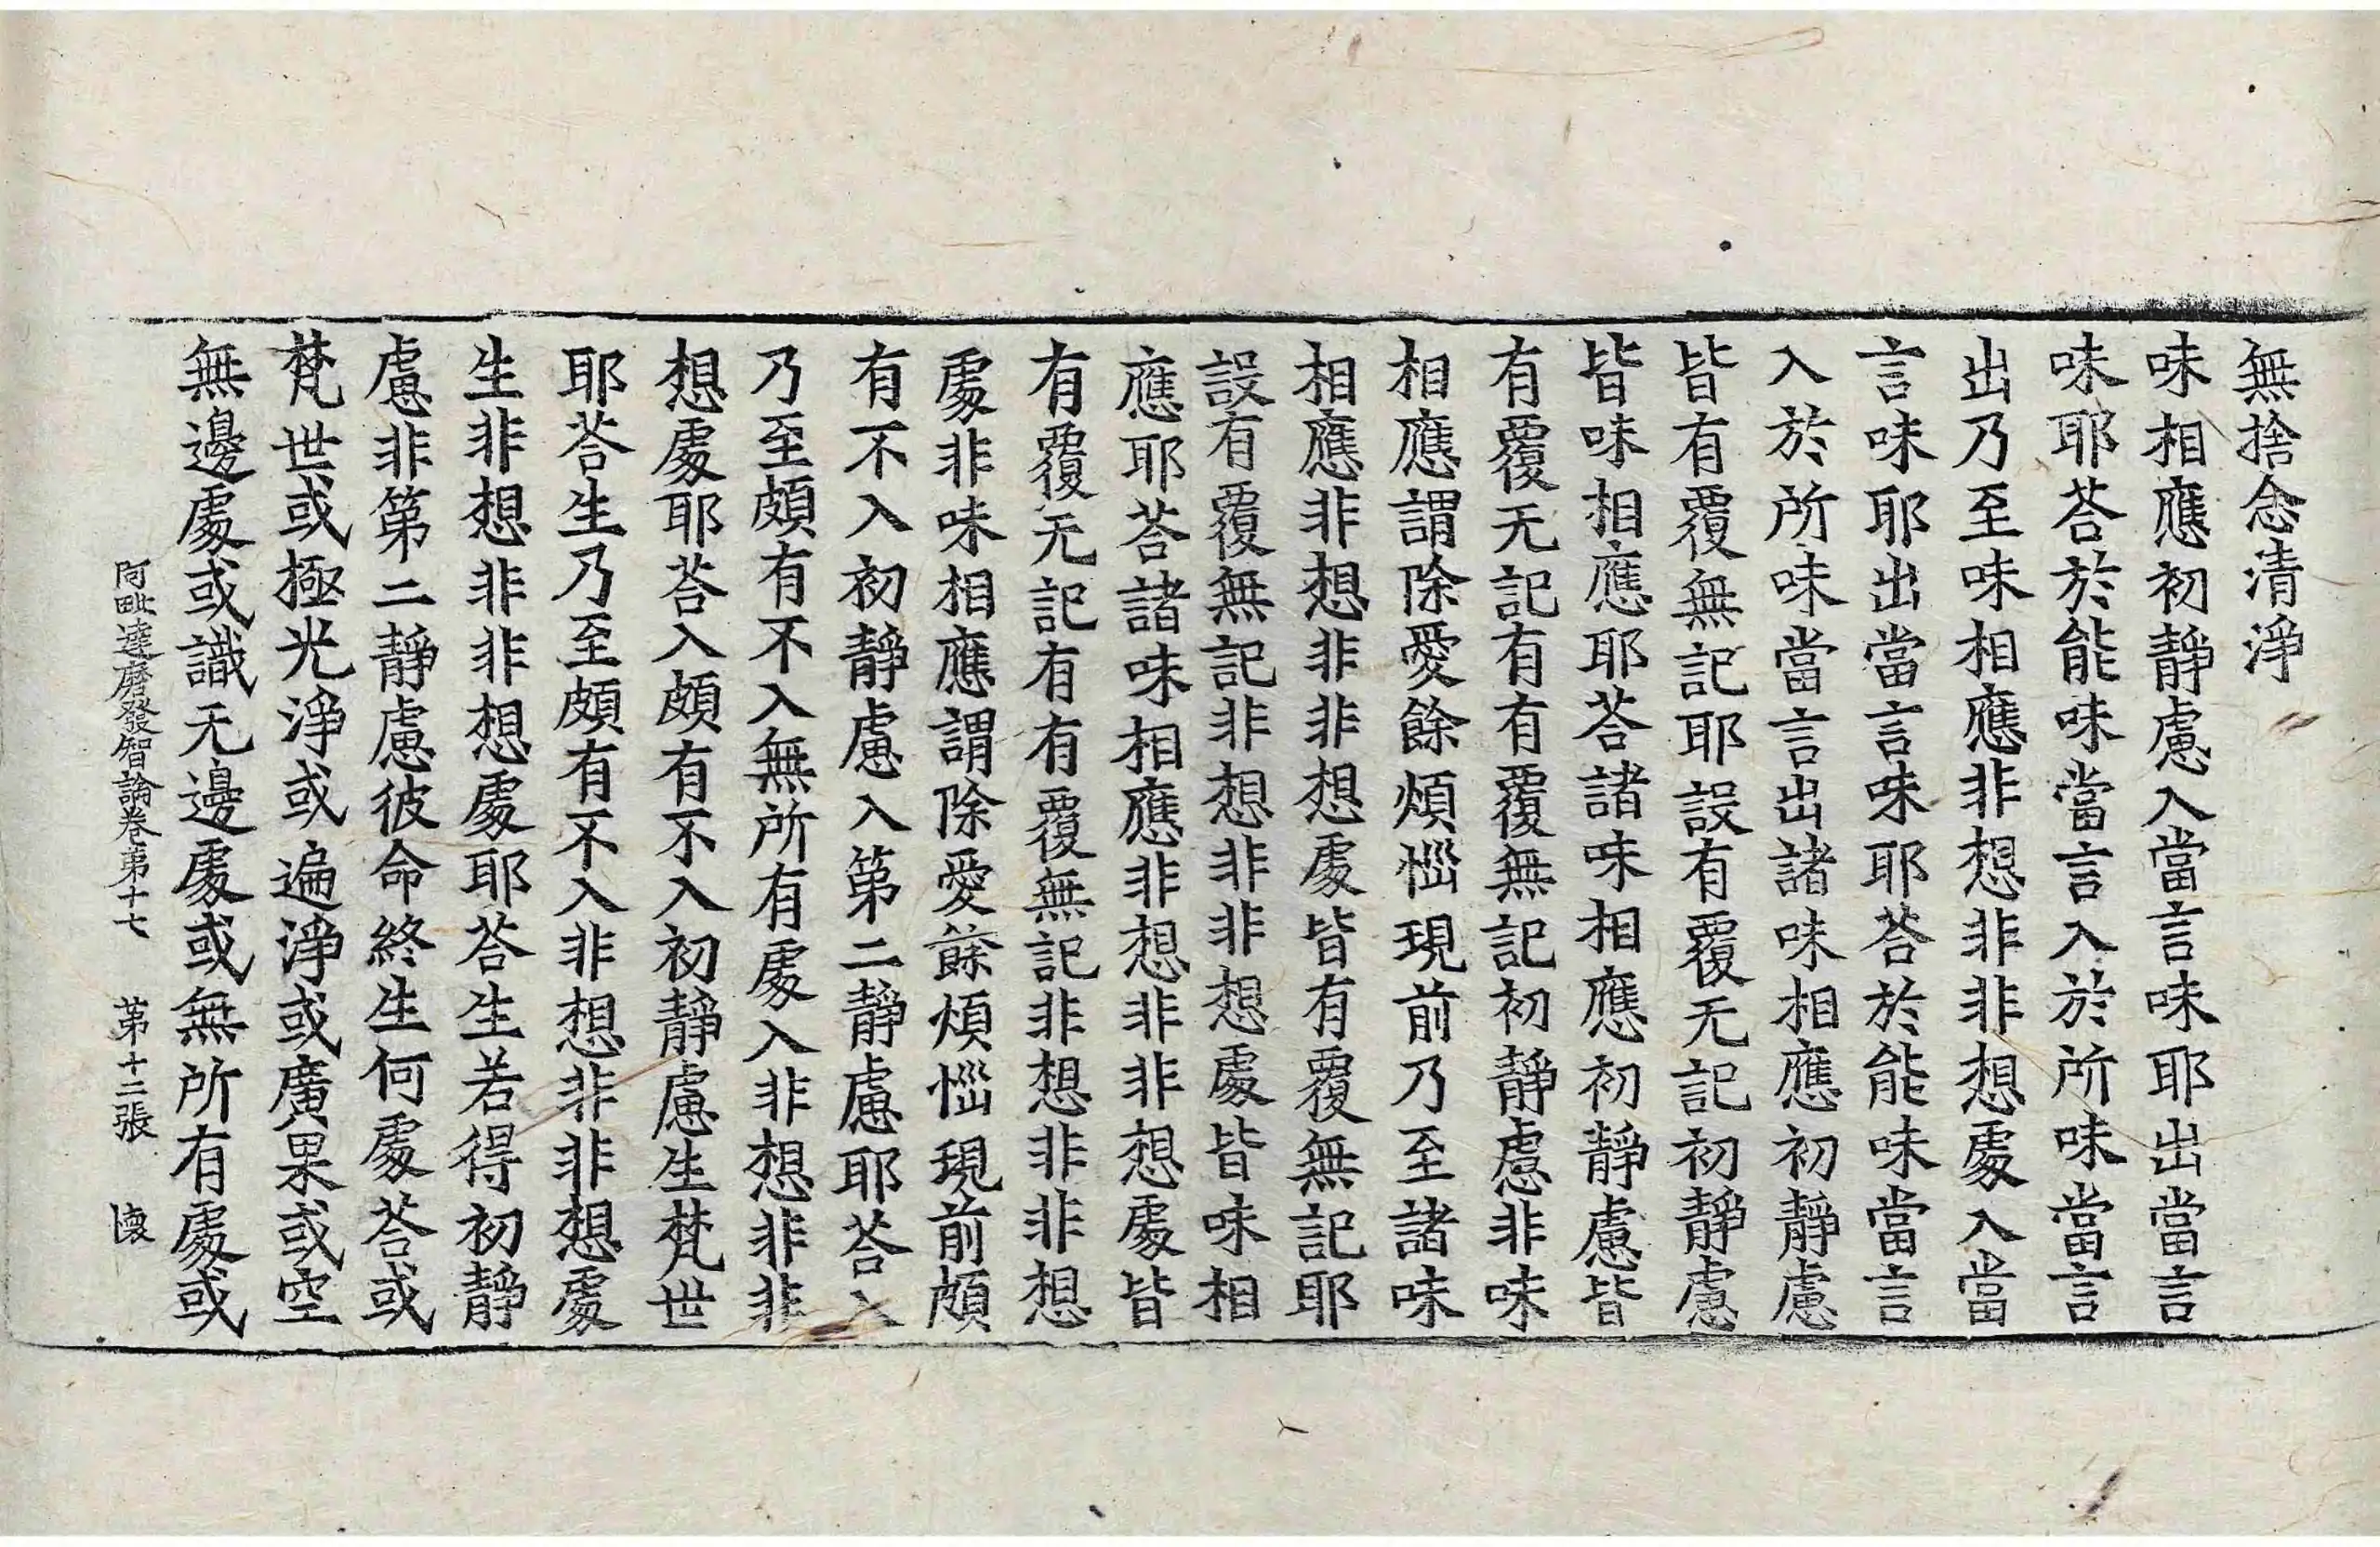 無捨念清淨
味相應初靜慮入當言味耶出當言
味耶荅於能味當言入於所味當言
出乃至味相應非想非非想處入當
言味耶出當言味耶荅於能味當言
入於所味當言出諸味相應初靜慮
皆有覆無記耶設有覆无記初靜慮
皆味相應耶荅諸味相應初靜慮皆
有覆无記有有覆無記初靜慮非味
相應謂除愛餘煩惱現前乃至諸味
相應非想非非想處皆有覆無記耶
設有覆無記非想非非想處皆味相
應耶荅諸味相應非想非非想處皆
有覆无記有有覆無記非想非非想
處非味相應謂除愛餘煩惱現前頗
有不入初靜慮入第二靜慮耶荅入
乃至頗有不入無所有處入非想非非
想處耶荅入頗有不入初靜慮生梵世
耶荅生乃至頗有不入非想非非想處
生非想非非想處耶荅生若得初靜
慮非第二靜慮彼命終生何處荅或
梵世或極光淨或遍淨或廣果或空
無邊處或識无邊處或無所有處或
阿毗達磨發智論卷第十七 第十二張 懐